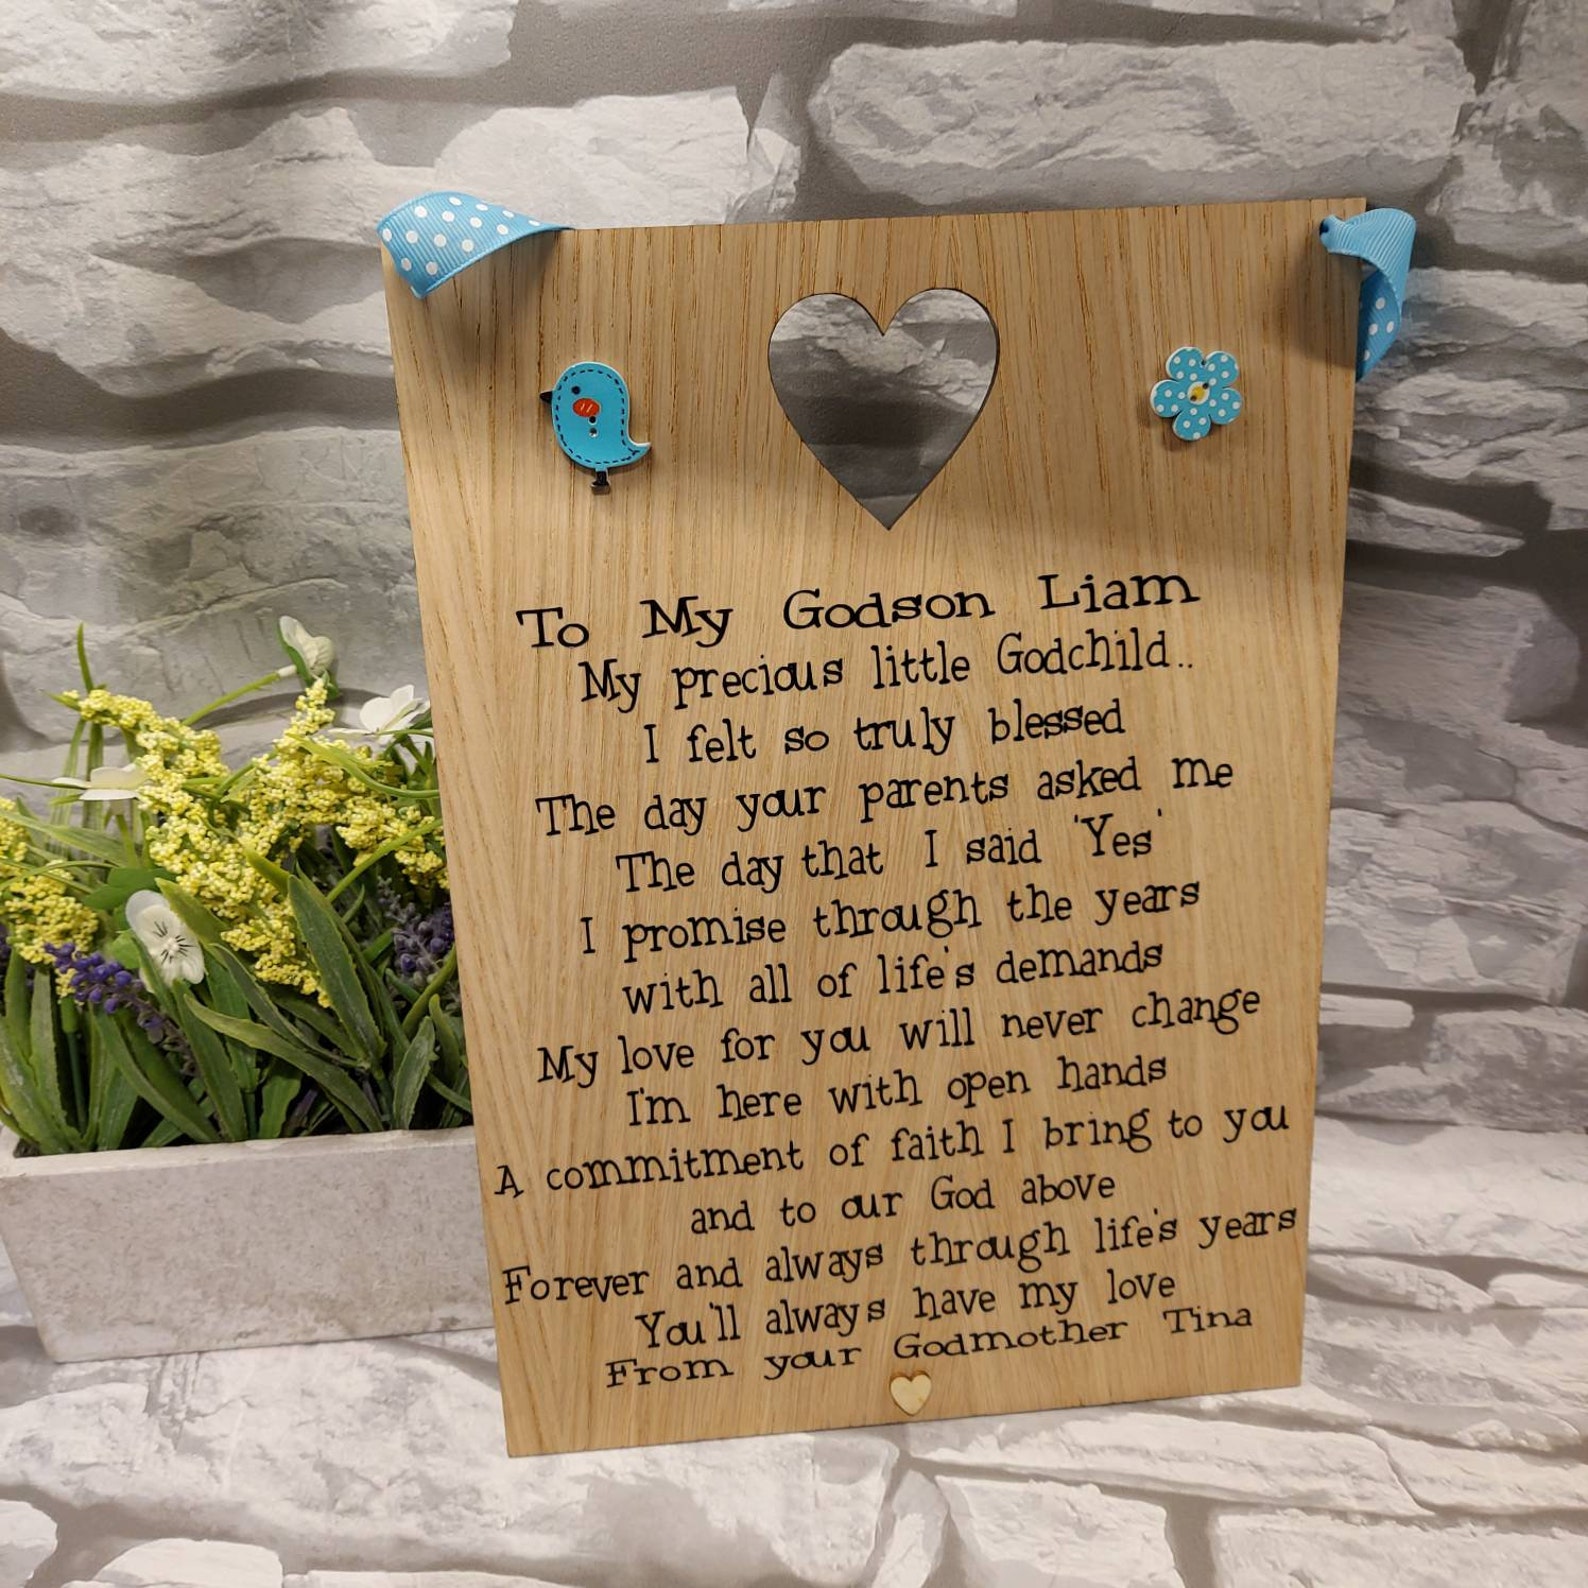 To My Godson Liam
My precious little Godchild..
I felt so truly blessed
The day your parents asked me
The day that I said 'Yes'
I promise through the years
with all of life's demands
My love for you will never change
I'm here with open hands
A commitment of faith I bring to you
and to our God above
Forever and always through life's years
You'll always have my love
From your Godmother Tina